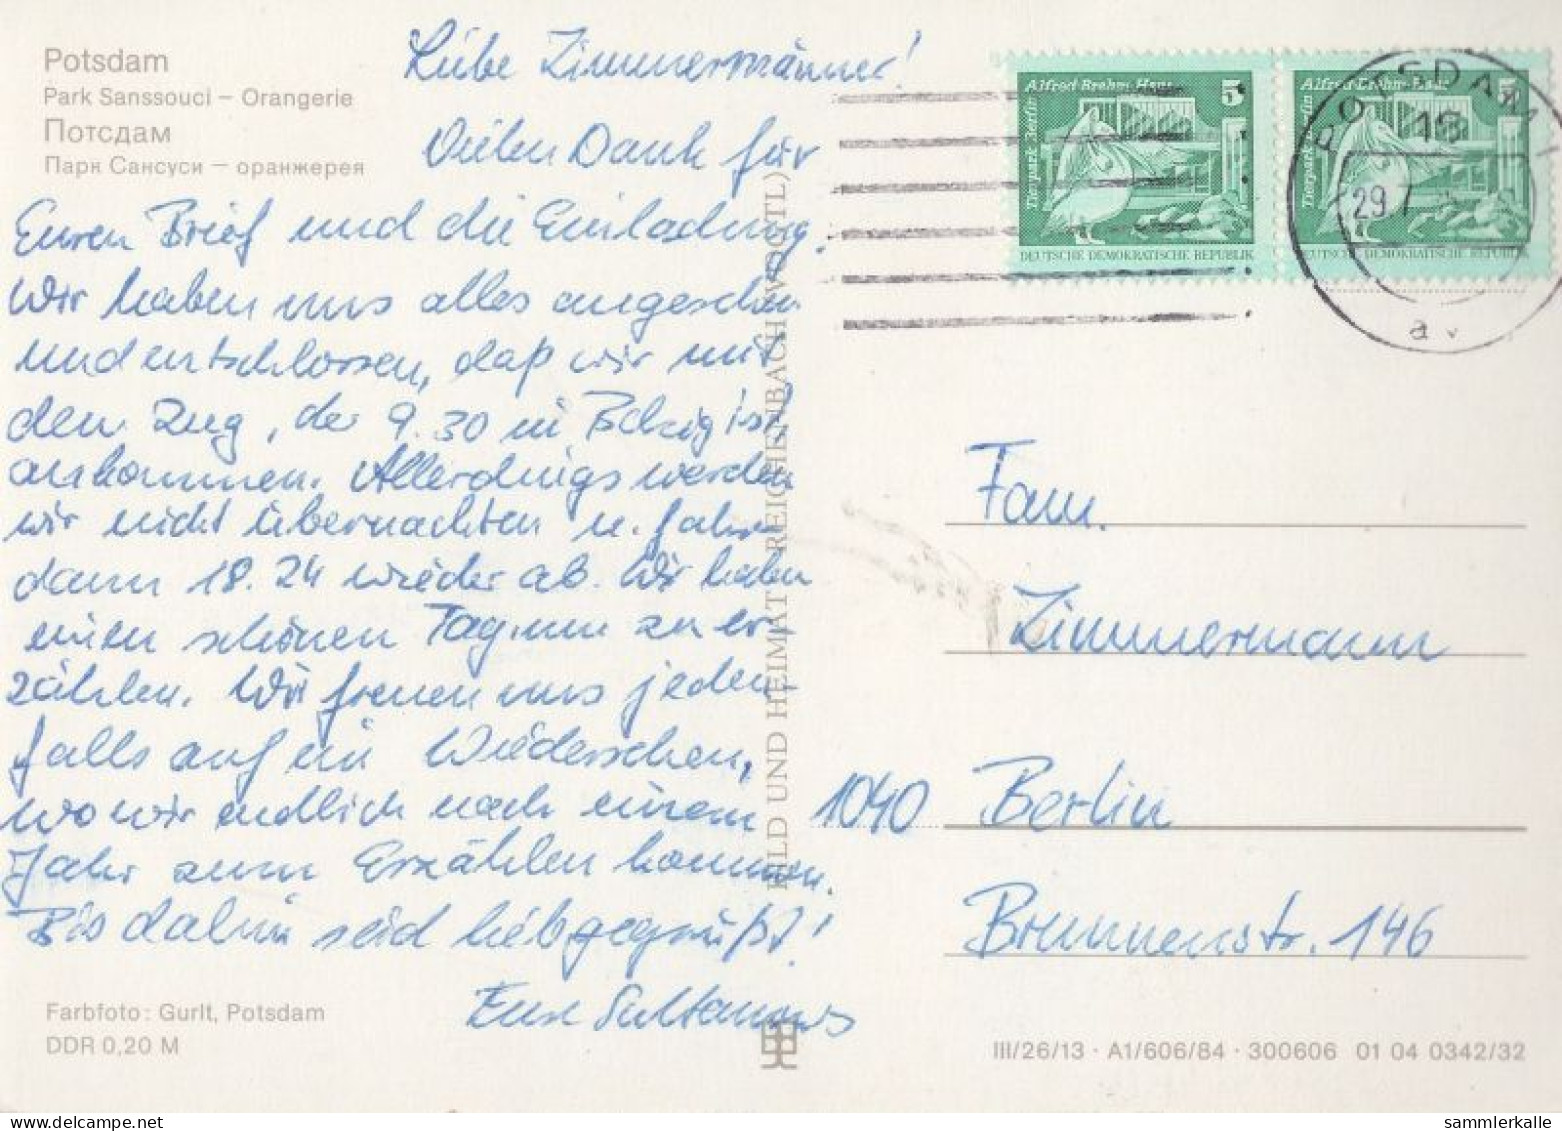 Potsdam
Park Sanssouci – Orangerie
Потсдам
Парк Сансуси – оранжерея
Liebe Zimmermänner!
Vielen Dank für
Euren Brief und die Einladung.
Wir haben uns alles angesehen
und entschlossen, daß wir mit
dem Zug, der 9.30 in Belzig ist
ankommen. Allerdings werden
wir nicht übernachten u. fahren
dann 18.24 wieder ab. Wir haben
einen schönen Tag um zu er-
zählen. Wir freuen uns jeden-
falls auf ein Wiedersehen,
wo wir endlich nach einem
Jahr zum Erzählen kommen.
Bis dahin seid liebgegrüßt!
Eure
Farbfoto: Gurlt, Potsdam
DDR 0,20 M
BILD UND HEIMAT REICHENBACH (VOGTL)
Alfred-Brehm-Haus 5
Tierpark Berlin
DEUTSCHE DEMOKRATISCHE REPUBLIK
Alfred-Brehm-Haus 5
Tierpark Berlin
DEUTSCHE DEMOKRATISCHE REPUBLIK
POTSDAM 1
29.7
Fam.
Zimmermann
1040 Berlin
Brunnenstr. 146
III/26/13 · A1/606/84 · 300606 01 04 0342/32
sammlerkalle